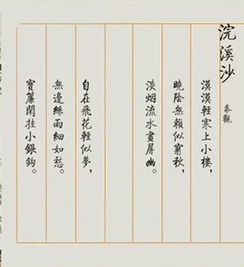 浣溪沙
秦觀
漠漠輕寒上小樓，
曉陰無賴似窮秋，
淡烟流水畫屏幽。
自在飛花輕似夢，
無邊絲雨細如愁。
寳簾閑挂小銀鈎。